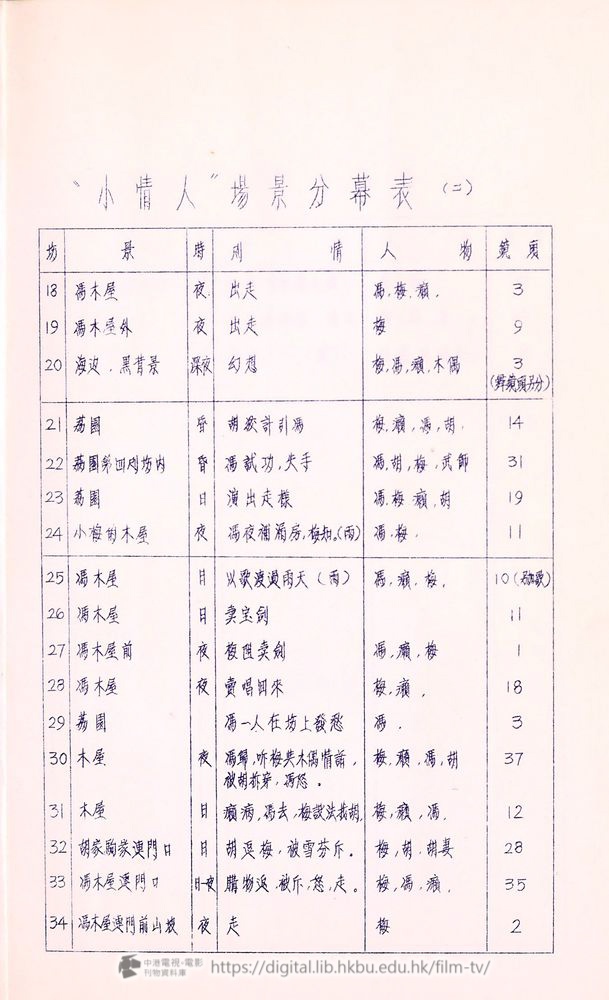 “小情人”場景分幕表 (二)
場 景 時 劇情 人物 鏡頭
18 馮木屋 夜 出走 馮.梅.癩. 3
19 馮木屋外 夜 出走 梅 9
20 海边.黑背景 深夜 幻想 梅.馮.癩.木偶 3
21 荔園 昏 胡設計引馮 梅.癩.馮.胡. 14
22 荔園第四劇場內 昏 馮試功,失手 馮.胡.梅.武師 31
23 荔園 日 演出走樣 馮.梅.癩.胡 19
24 小梅樹木屋 夜 馮夜補漏房,梅知。(雨) 馮.梅. 11
25 馮木屋 日 以歌渡過雨天(雨) 馮.癩.梅. 10
26 馮木屋 日 賣宝劍 11
27 馮木屋前 夜 梅阻賣劍 馮.癩.梅 1
28 馮木屋 夜 賣唱回來 梅.癩. 18
29 荔園 馮一人在場上發愁 馮. 3
30 木屋 夜 馮歸,听梅與木偶情話, 梅.癩.馮.胡 37
被胡拆穿,馮怒。
31 木屋 日 癩病,馮去,梅設法找胡, 梅.癩.馮. 12
32 胡家胸家連門口 日 胡逗梅,被雪芬斥。 梅.胡.胡妻 28
33 馮木屋連門口 日-夜 購物返,被斥,怒,走。 梅.馮.癩. 35
34 馮木屋連門前山坡 夜 走 梅 2
中港電視·電影
刊物資料庫
https://digital.lib.hkbu.edu.hk/film-tv/